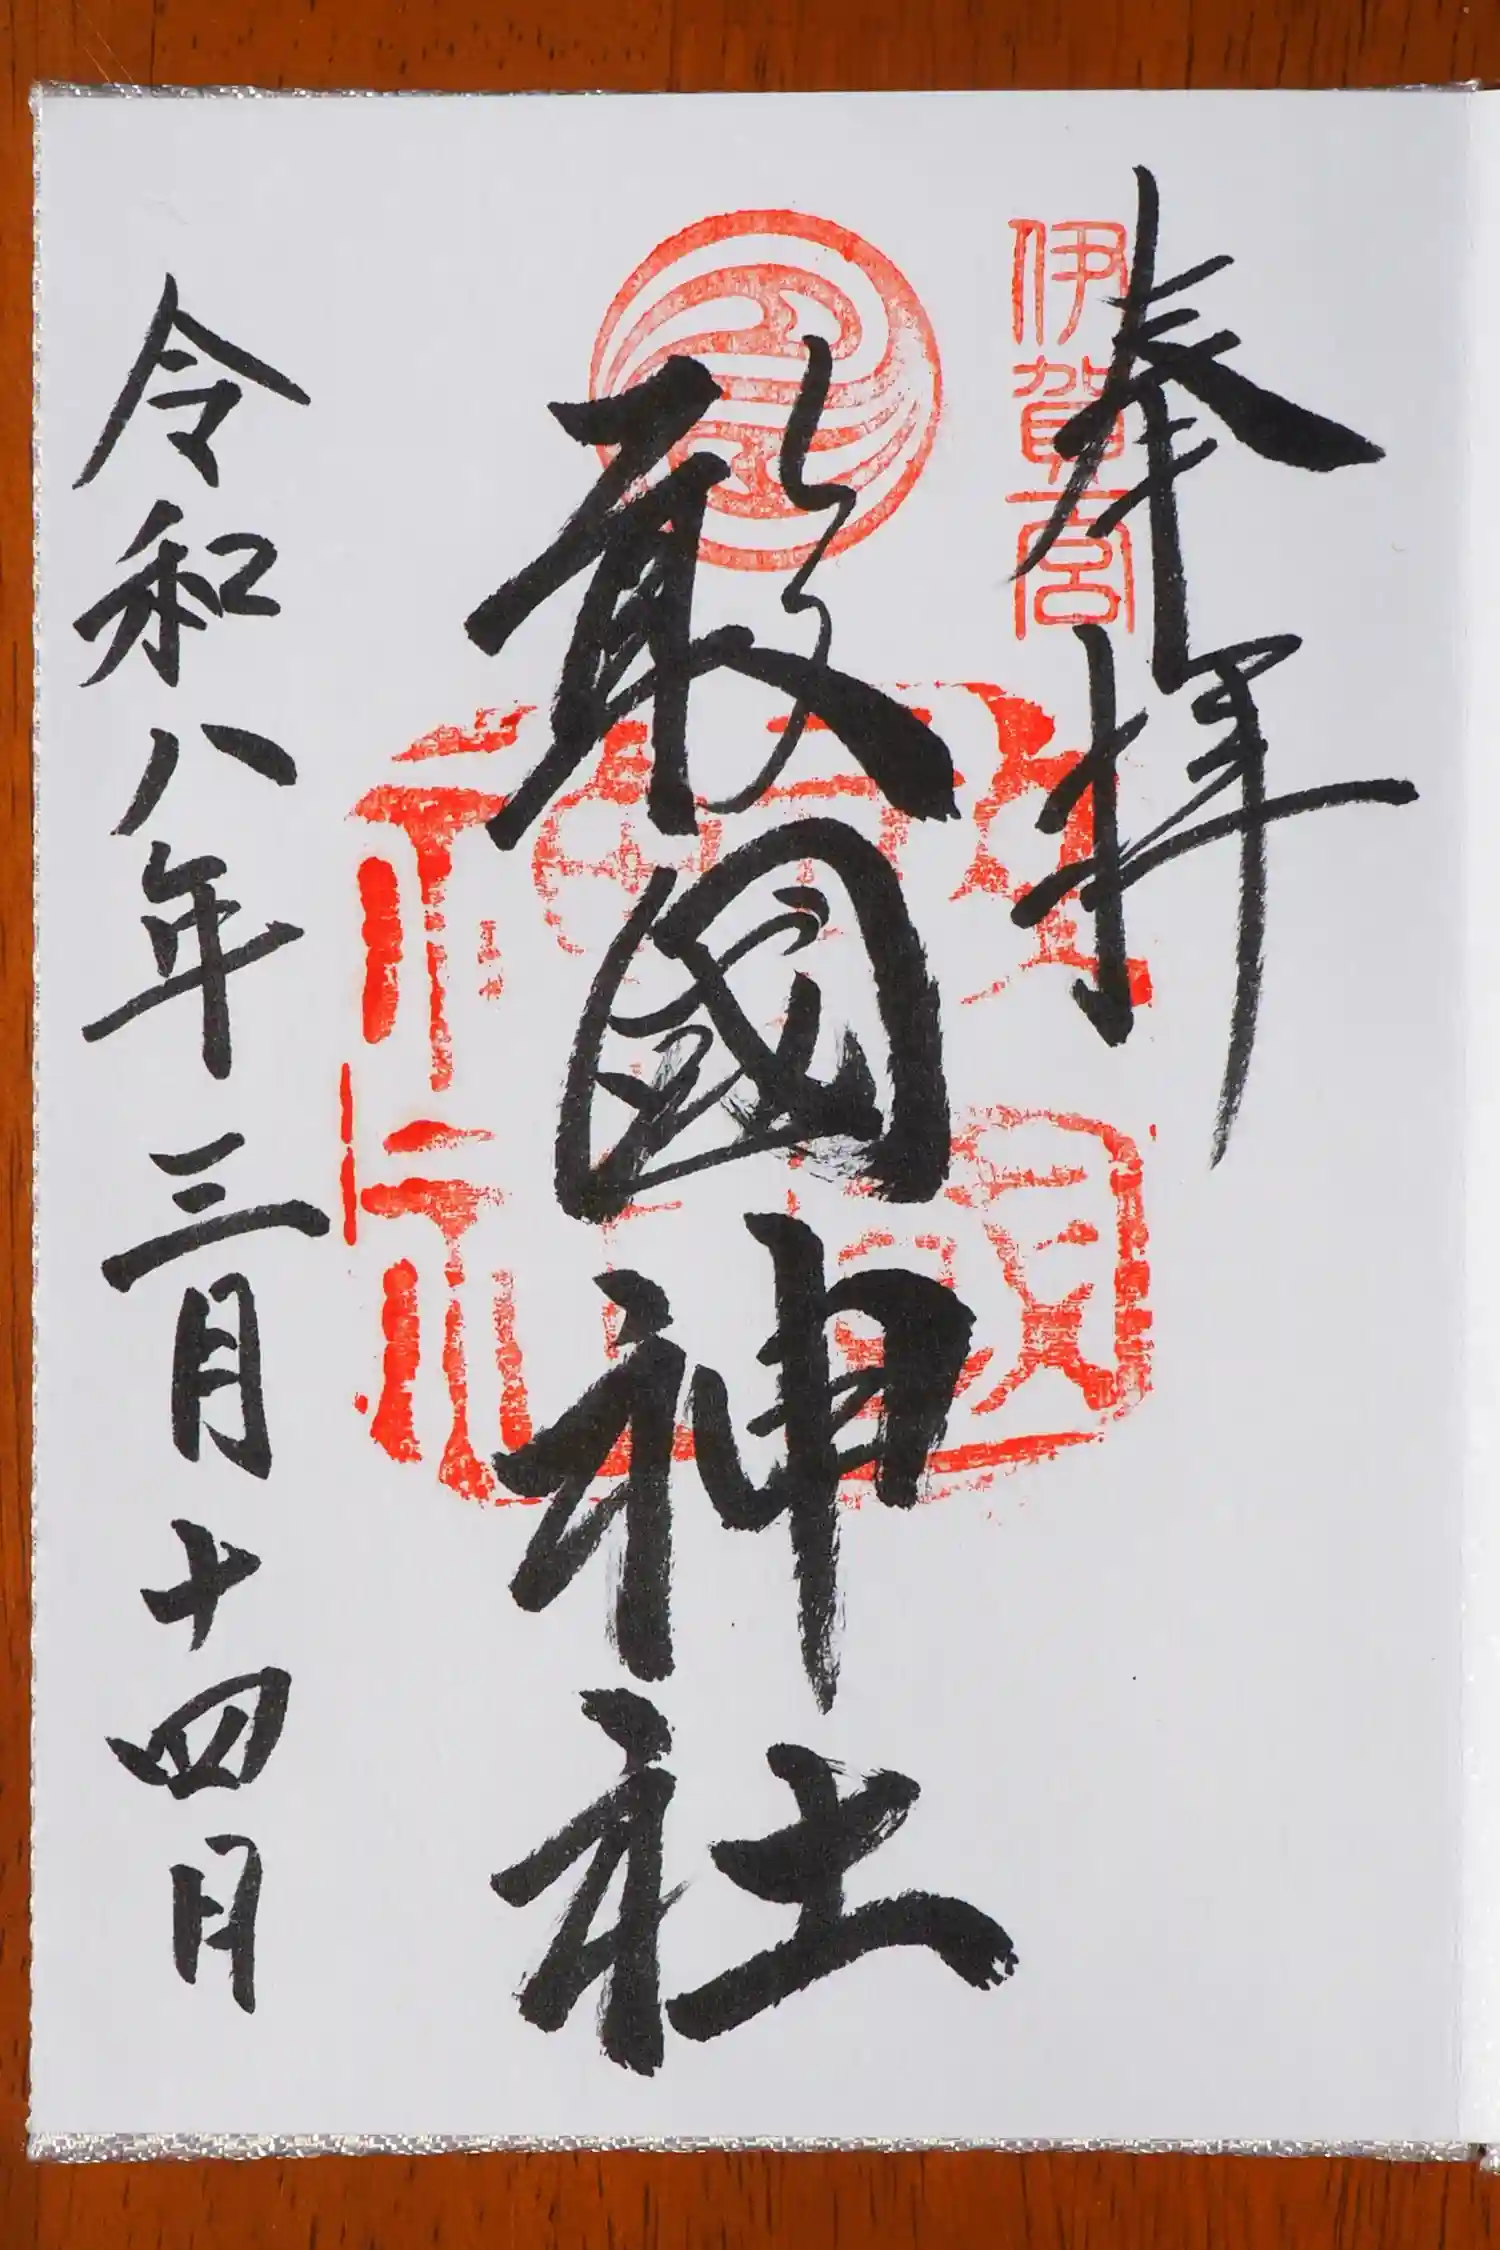 奉拝
伊賀一宮
敢國神社
令和八年三月十四日